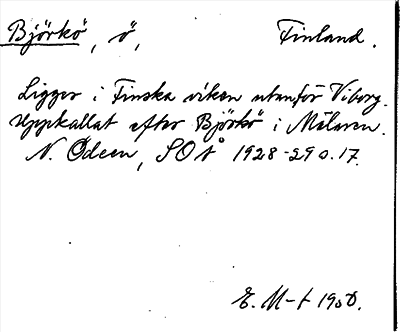 Björkö, ö, Finland.
Ligger i Finska viken utanför Viborg.
Uppkallat efter Björkö i Mälaren.
N. Ödeen, SOÅ 1928-29 s. 17.
E. M-t 1950.